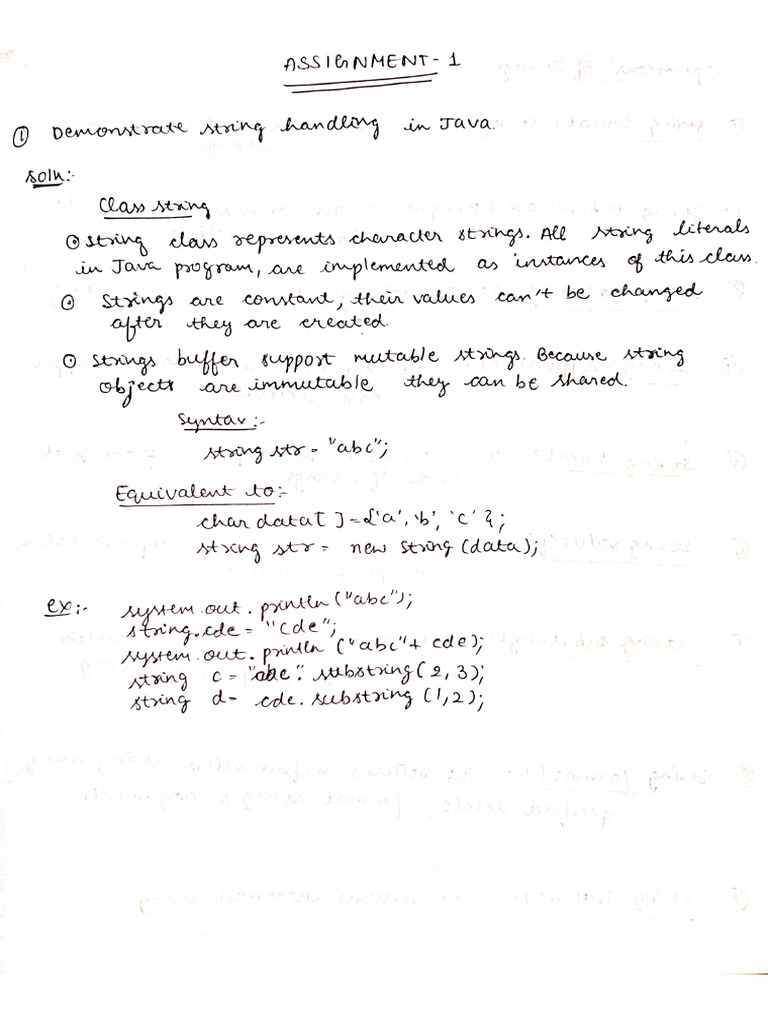 ASSIGNMENT - 1
① Demonstrate string handling in Java.
soln:-
Class string
⊙ string class represents character strings. All string literals
in Java program, are implemented as instances of this class.
⊙ Strings are constant, their values can't be changed
after they are created.
⊙ Strings buffer support mutable strings. Because string
objects are immutable they can be shared.
Syntax:-
string str = "abc";
Equivalent to:-
char data[ ] = {'a', 'b', 'c' };
string str = new string (data);
ex:- system.out.println ("abc");
string.cde = "cde";
system.out.println ("abc" + cde);
string c = "abc". substring (2, 3);
string d= cde. substring (1, 2);